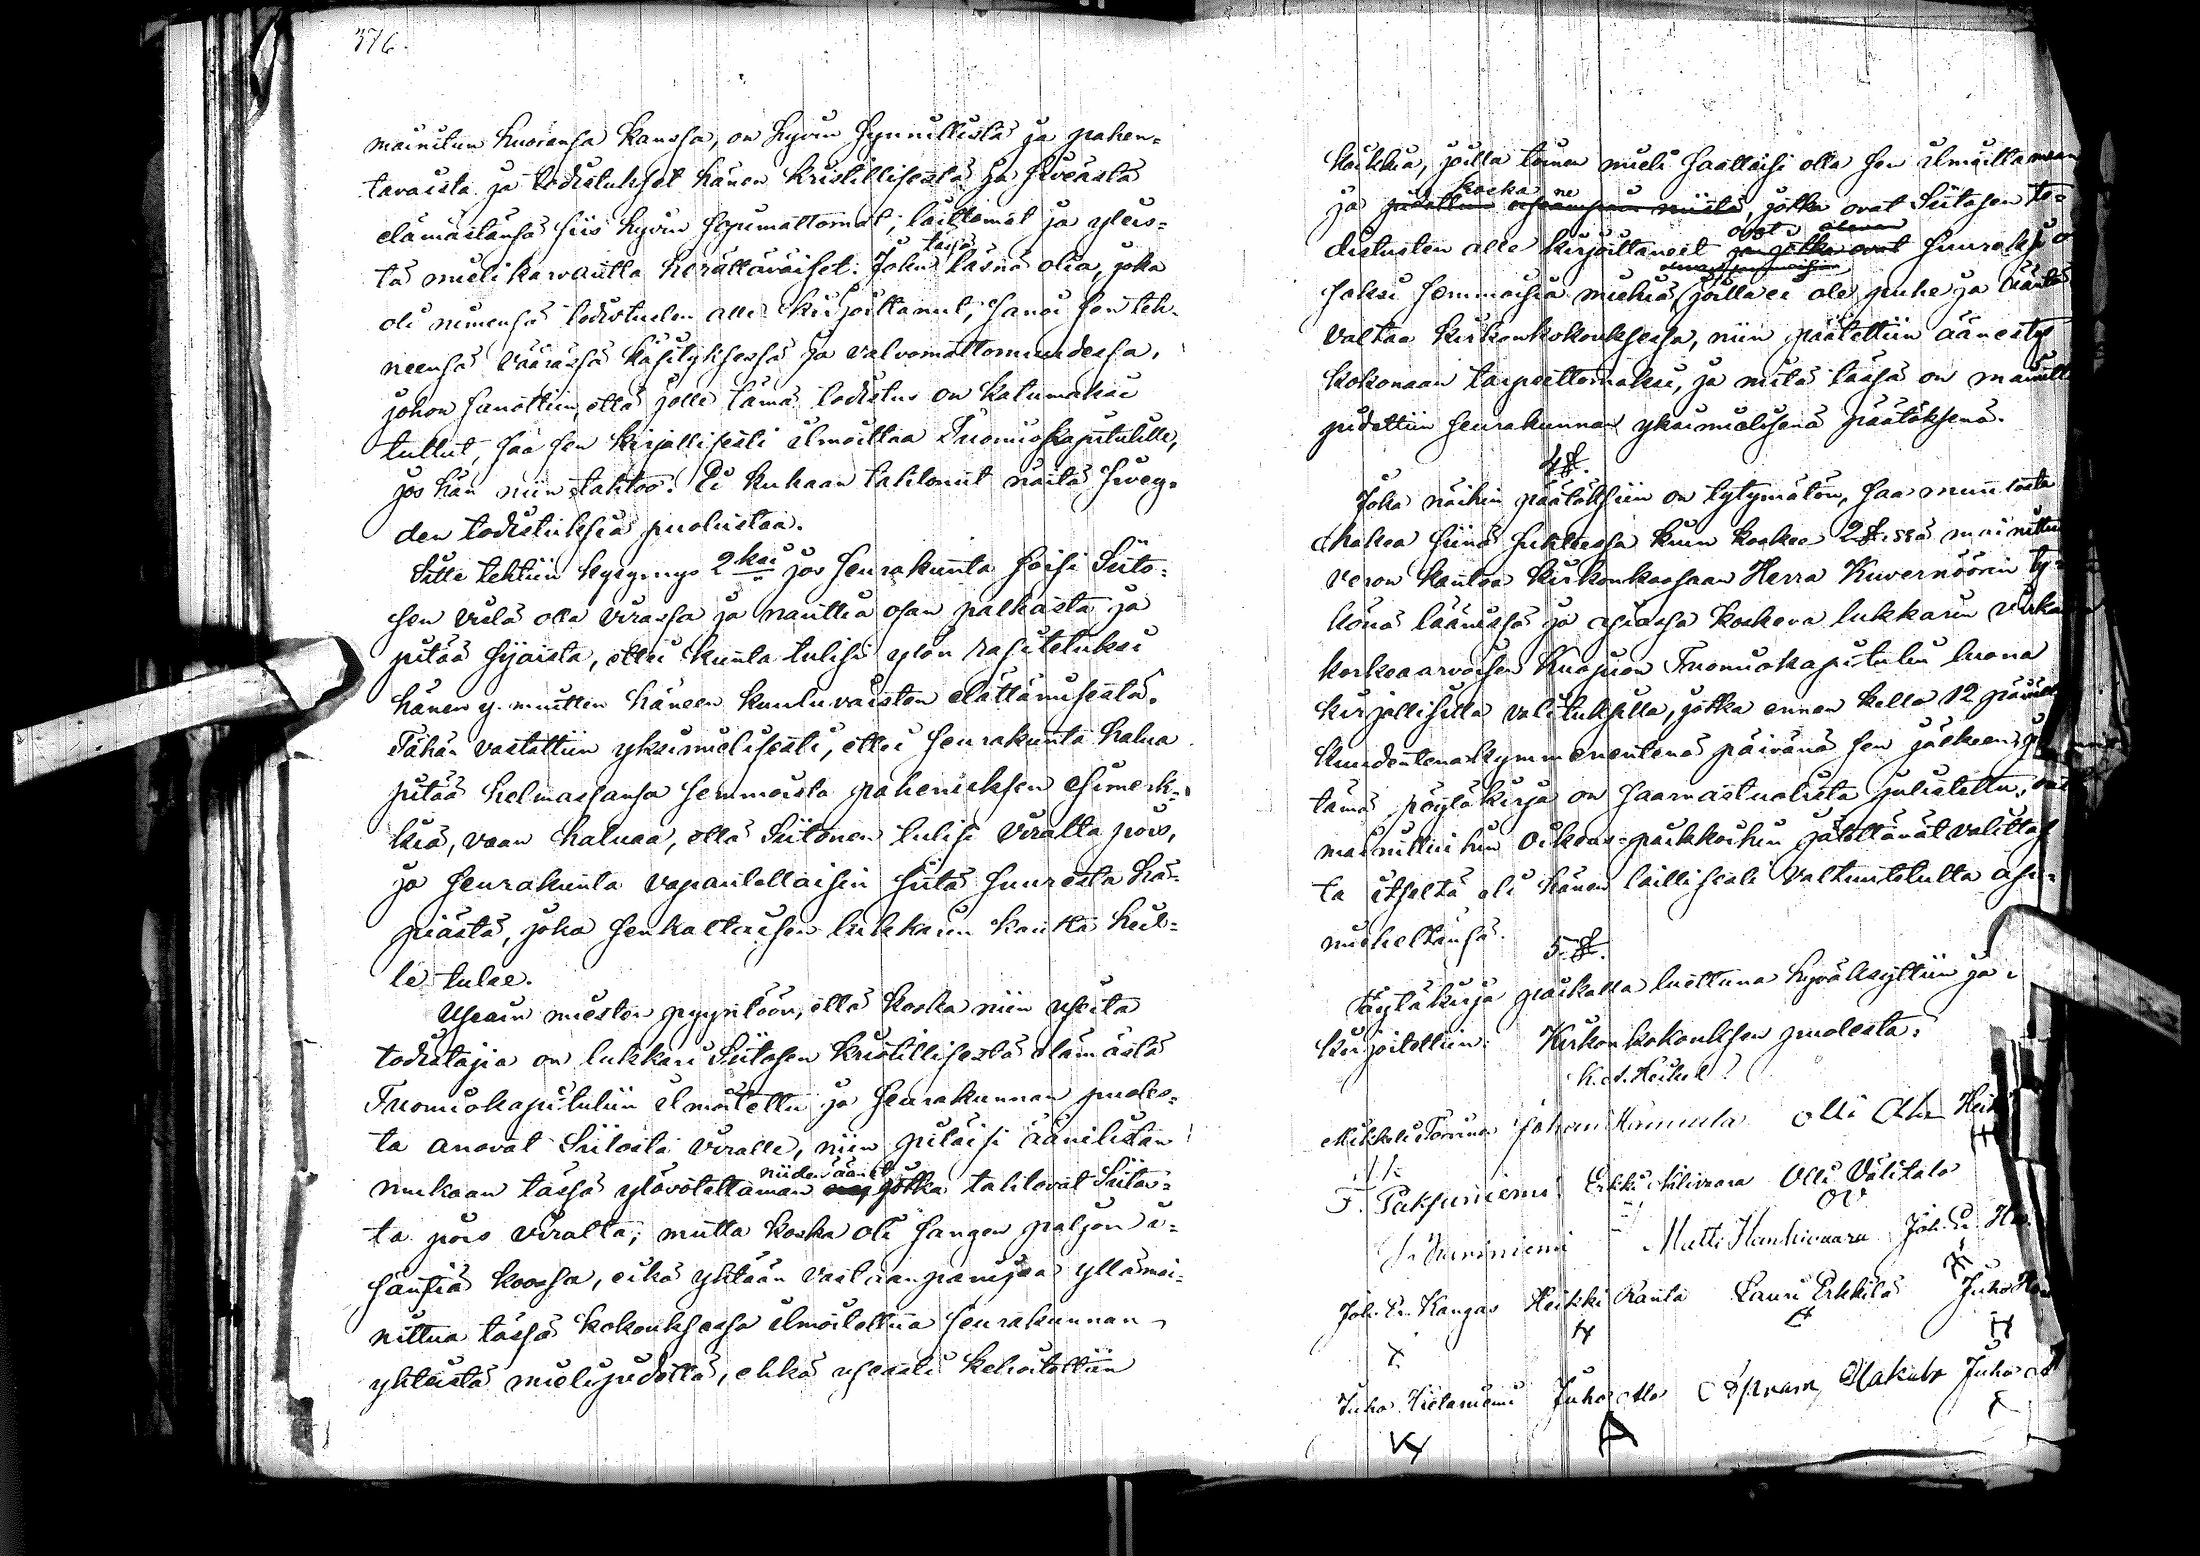 376.
mainitun huoransa kanssa, on hyvin synnillistä ja pahen-
tavaista ja todistukset hänen kristillisestä ja siveästä
elämästänsä siis hyvin sopimattomat, laittomat ja yleis-
tä mielikarvautta herättäväiset. Joku tässä läsnä olia, joka
oli nimensä todistuslen alle kirjoittanut, sanoi sen teh-
neensä väärässä käsityksessä ja valvomattomuudessa,
johon sanottiin, että jolle tämä todistus on katumaksi
tullut, saa sen kirjallisesti ilmoittaa Tuomiokapitulille,
jos hän niin tahtoo. Ei kukaan tahtonut näitä sivey-
den todistuksia puolustaa.
Sitte tehtiin kysymys 2ksi jos seurakunta soisi Siito-
sen vielä olla virassa ja nauttia osan palkasta ja
pitää sijaista, ettei kunta tulisi ylön rasitetuksi
hänen y. muitten häneen kuuluvaisten elättämisestä.
Tähän vastattiin yksimielisesti, ettei seurakunta halua
pitää helmassansa semmoista pahenuksen esimerk-
kiä, vaan haluaa, että Siitonen tulisi viralta pois,
ja seurakunta vapautettaisiin siitä suuresta hä-
piästä, joka senkaltaisen lukkarin kautta heil-
le tulee.
Usean miesten pyyntöön, että koska niin useita
todistajia on lukkari Siitosen kristillisestä elämästä
Tuomiokapituliin ilmoitettu ja seurakunnan puoles-
ta anovat Siitosta viralle, niin pitäisi äänilistan
mukaan tässä ylösotettaman niiden äänet jotka tahtovat Siitos-
ta pois viralta; mutta koska oli sangen paljon i-
säntiä koossa, eikä yhtään vastaanpanijaa yllämai-
nittua tässä kokouksessa ilmoitettua seurakunnan
yhteistä mielipidettä, ehkä useasti kehoitettiin
kaikkia, joilla toinen mieli saattaisi olla sen ilmoittamaan
ja koska ne, jotka ovat Siitosen to-
distusten alle kirjoittaneet ovat suureksi o-
saksi semmoisia miehiä, joilla ei ole puhe ja ääntö
valtaa kirkonkokouksessa, niin päätettiin äänestys
kokonaan tarpeettomaksi, ja mitä tässä on mainittu
pidettiin seurakunnan yksimielisenä päätöksenä.
4 §.
Joka näihin päätöksiin on tytymätön, saa muutosta
hakea siinä suhteessa kuin koskee 2 §:ssä mainittu
veron kantoa kirkonkassaan Herra Kuvernöörin ty-
könä läänissä ja asiassa koskeva lukkarin virkaa
korkeaarvoisen Kuopion Tuomiokapitulin luona
kirjallisilla valituksilla, jotka ennen kello 12 päivällä
kuudentenakymmenentenä päivänä sen jälkeen,
tämä pöytäkirja on saarnastuolista julistettu,
mainittuihin oikeus-paikkoihin jätettävät valittaja
ta itseltä eli hänen laillisesti valtuutetulta asia-
mieheltänsä.
5 §.
Pöytäkirja paikalla luettuna hyväksyttiin ja
kirjoitettiin. Kirkonkokouksen puolesta:
K. A. Heikel
Mikkeli Torvinen Johan Hannula Olli
F. Paksuniemi Erkki Kilivaara Olli Välitalo
OV
Matti Hankivaara
Joh. Er. Kangas Heikki Ranta Lauri Erkkilä Juho
Juho Kielaniemi Juho Juho